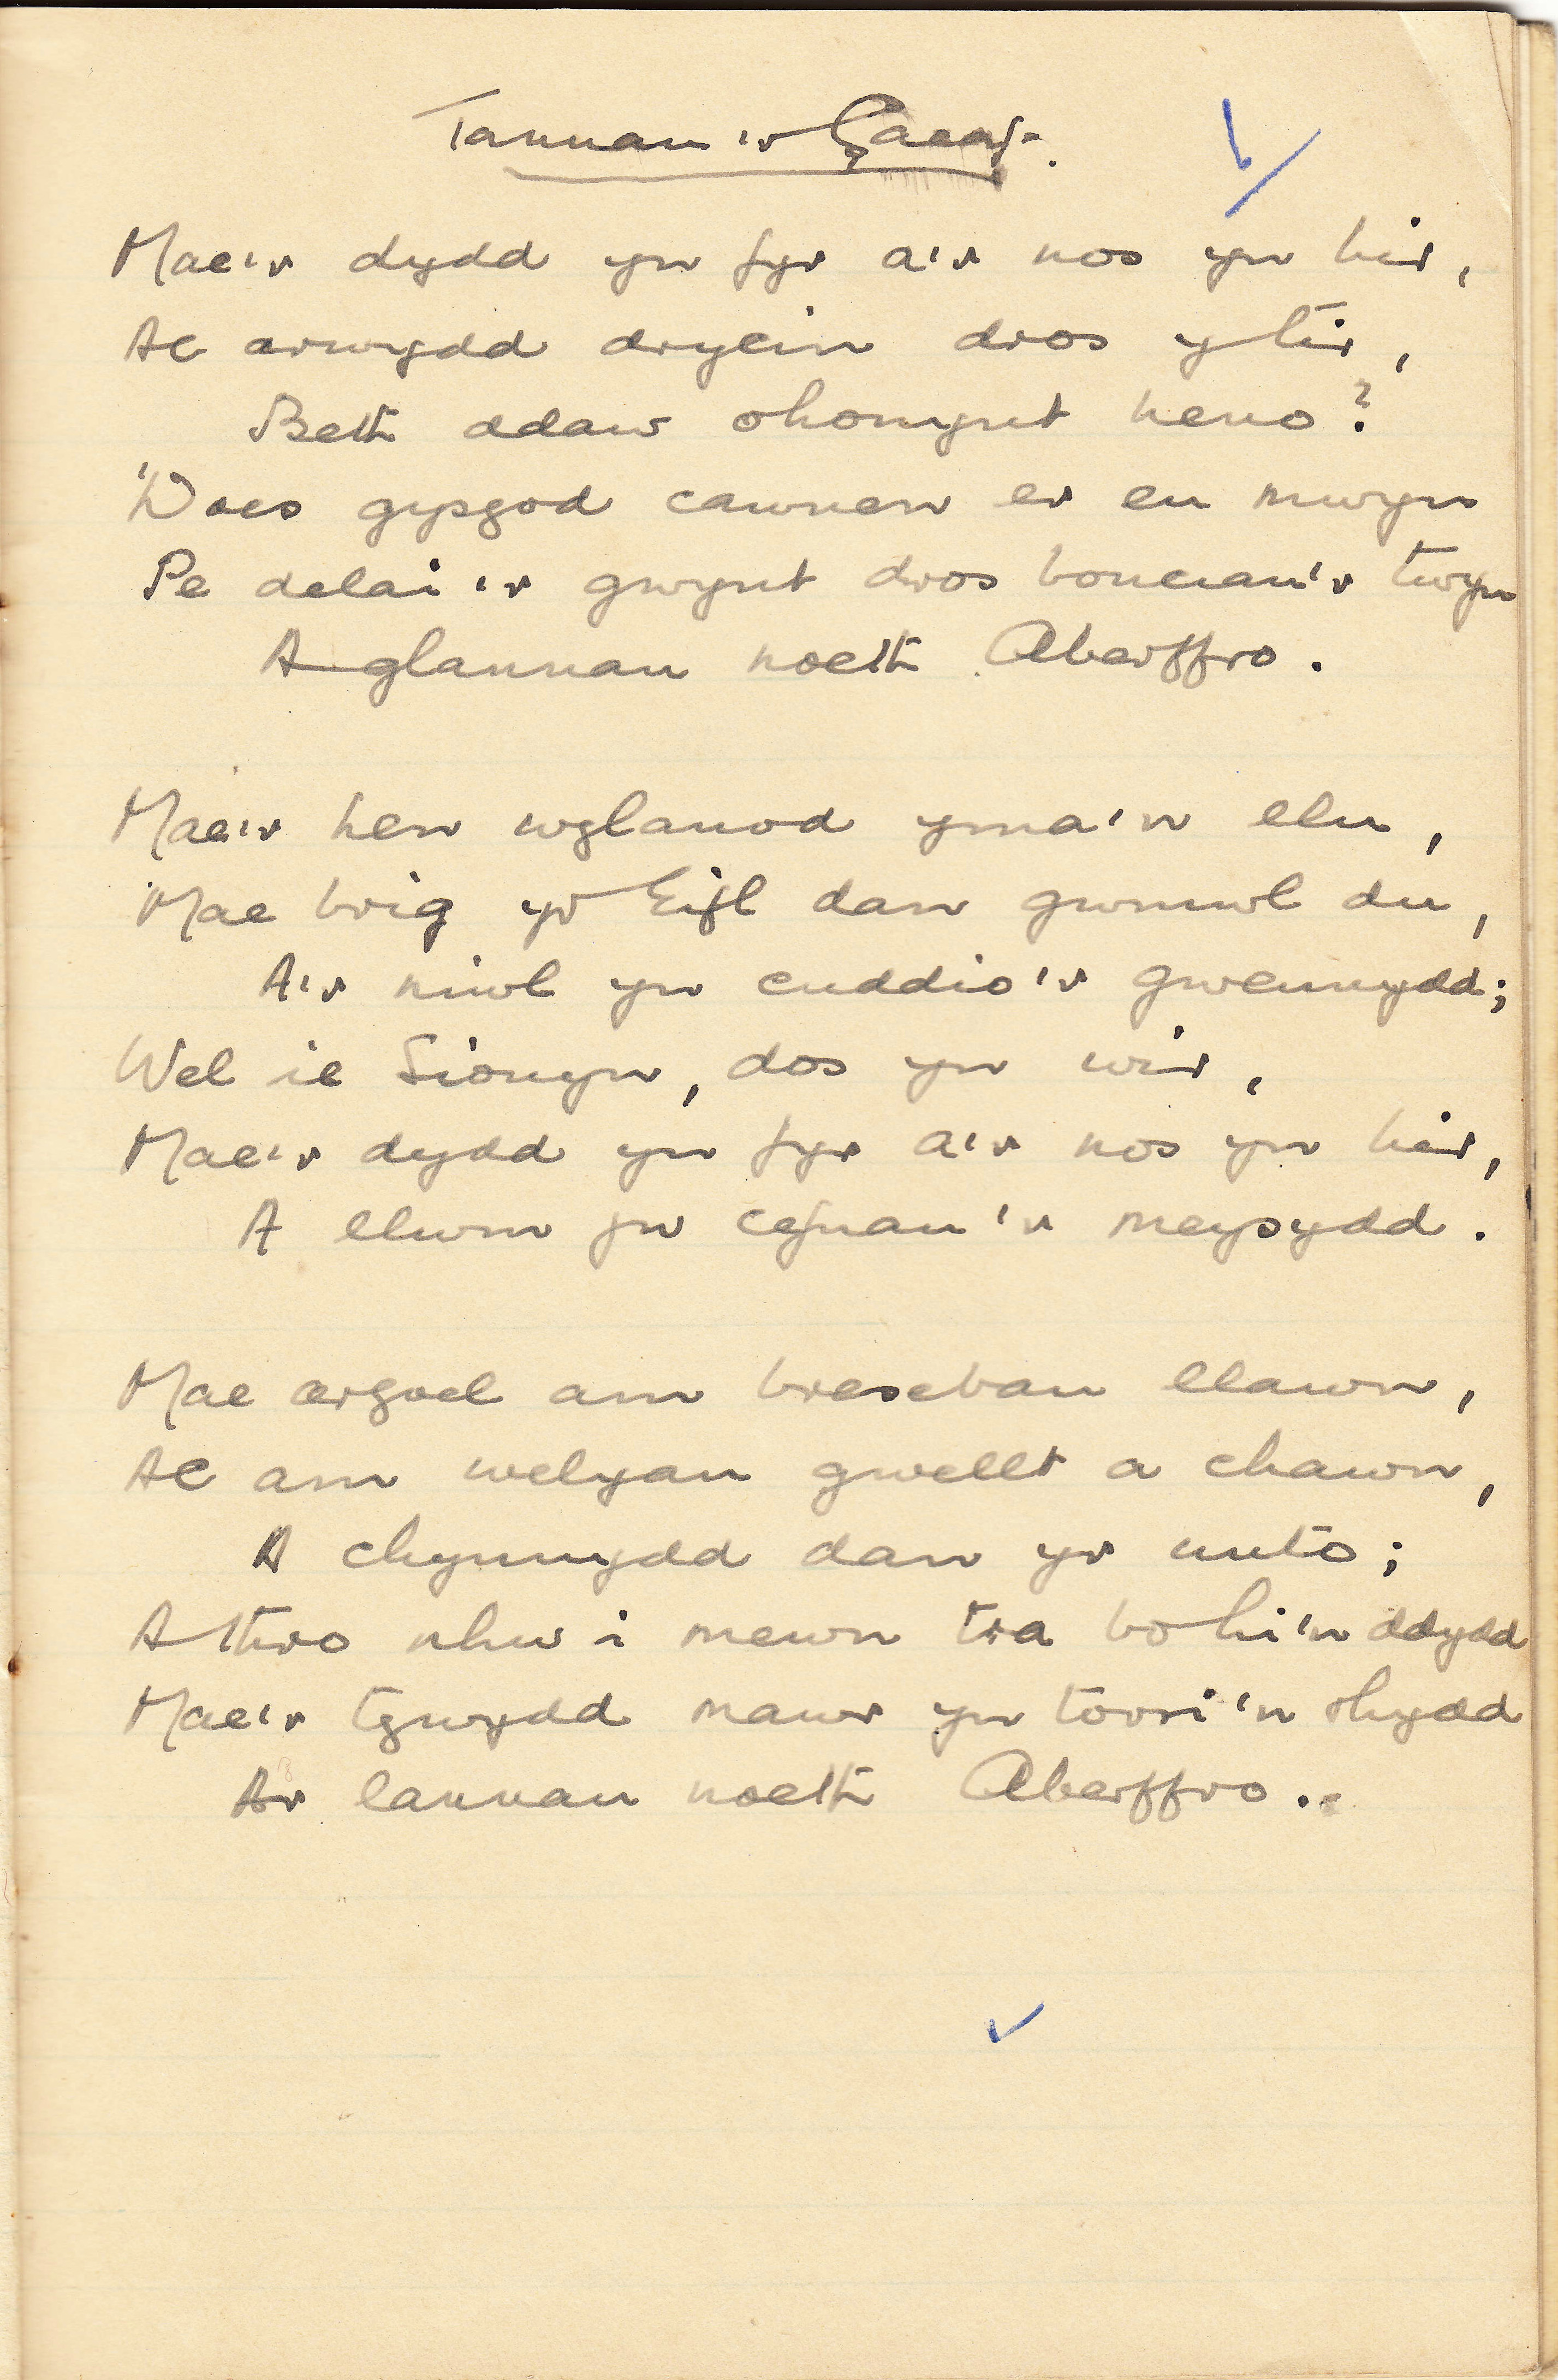 Tannau'r Gaeaf.
Mae'r dydd yn fyr a'r nos yn hir,
Ac arwydd drycin dros y tir,
Beth ddaw ohonynt heno?
'Does gysgod cawnen er eu mwyn
Pe delai'r gwynt dros bonciau'r twyn
A glannau noeth Aberffro.
Mae'r hen wylanod yma'n llu,
Mae brig yr Eifl dan gwmwl du,
A'r niwl yn cuddio'r gweunydd;
Wel ie Sionyn, dos yn wir,
Mae'r dydd yn fyr a'r nos yn hir,
A llwm yw cefnau'r meysydd.
Mae argoel am bresebau llawn,
Ac am welyau gwellt a chawn,
A chynnydd dan yr unto;
A thro nhw i mewn tra bo hi'n ddydd
Mae'r tywydd mawr yn torri'n rhydd
Ar lannau noeth Aberffro.